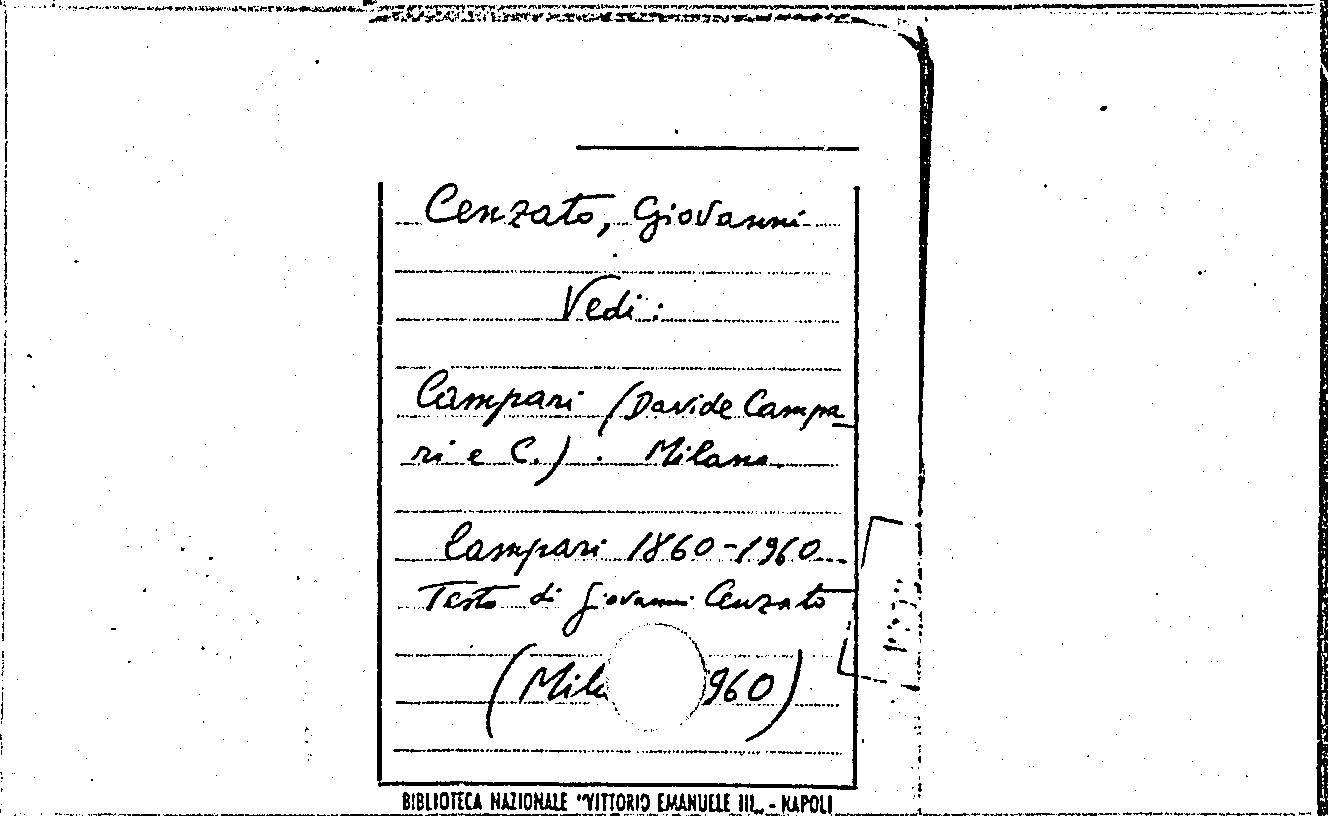 Cenzato, Giovanni
Vedi:
Campari (Davide Campa
ri e C.). Milano.
Campari 1860-1960
Testo di Giovanni Cenzato
(Mila 960)
BIBLIOTECA NAZIONALE "VITTORIO EMANUELE III„ - NAPOLI